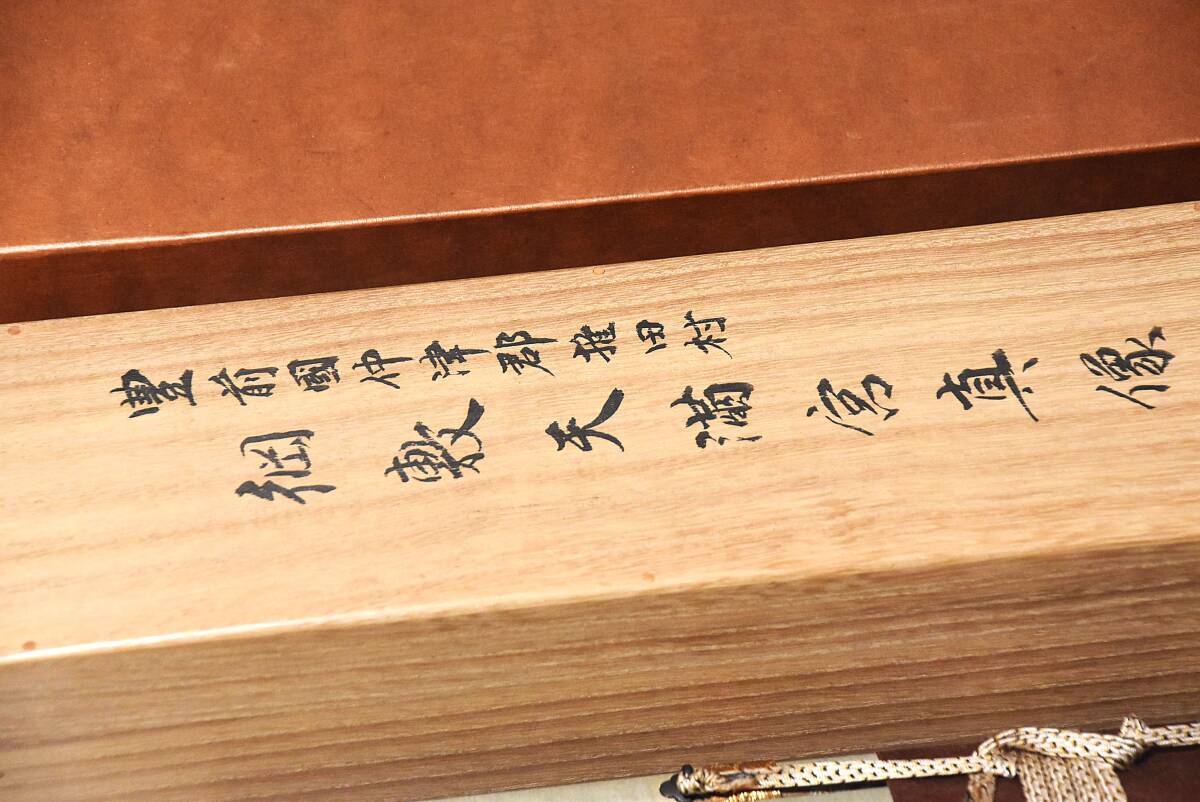 豊前國仲津郡雅田村
綱敷天満宮真像